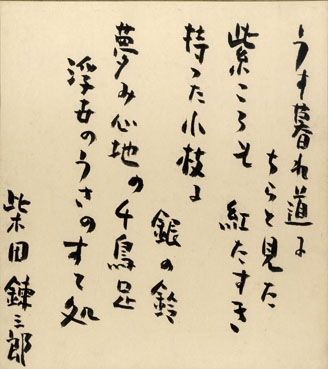 うす暮れ道に
ちらと見た
紫ころも 紅たすき
持った小枝に
銀の鈴
夢み心地の千鳥足
浮世のうさのすて処
柴田錬三郎